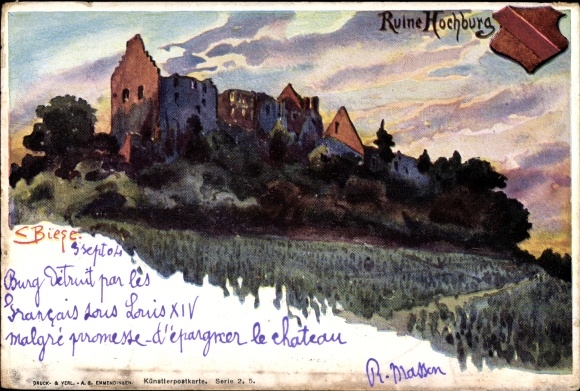 Ruine Hochburg.
C Biese.
3 sept 04
Burg détruit par les
Français sous Louis XIV
malgré promesse d'épargner le chateau
R. Masson
DRUCK- & VERL. - A. G. EMMENDINGEN. Künstlerpostkarte. Serie 2, 5.